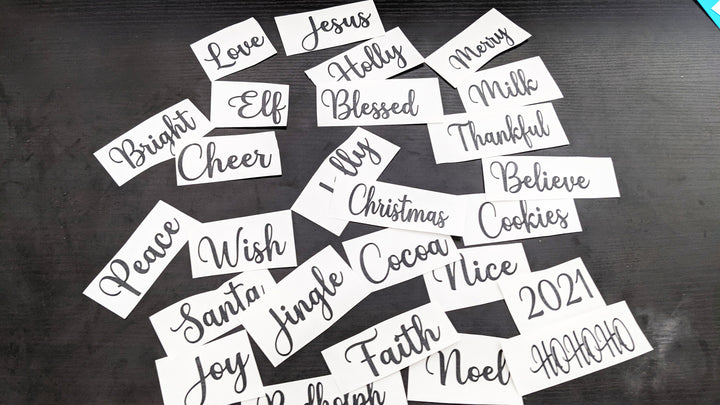 Love
Jesus
Holly
Merry
Elf
Blessed
Milk
Bright
Cheer
Thankful
Believe
Christmas
Cookies
Peace
Wish
Cocoa
Nice
Santa
Jingle
2021
Joy
Faith
Noel
HOHOHO